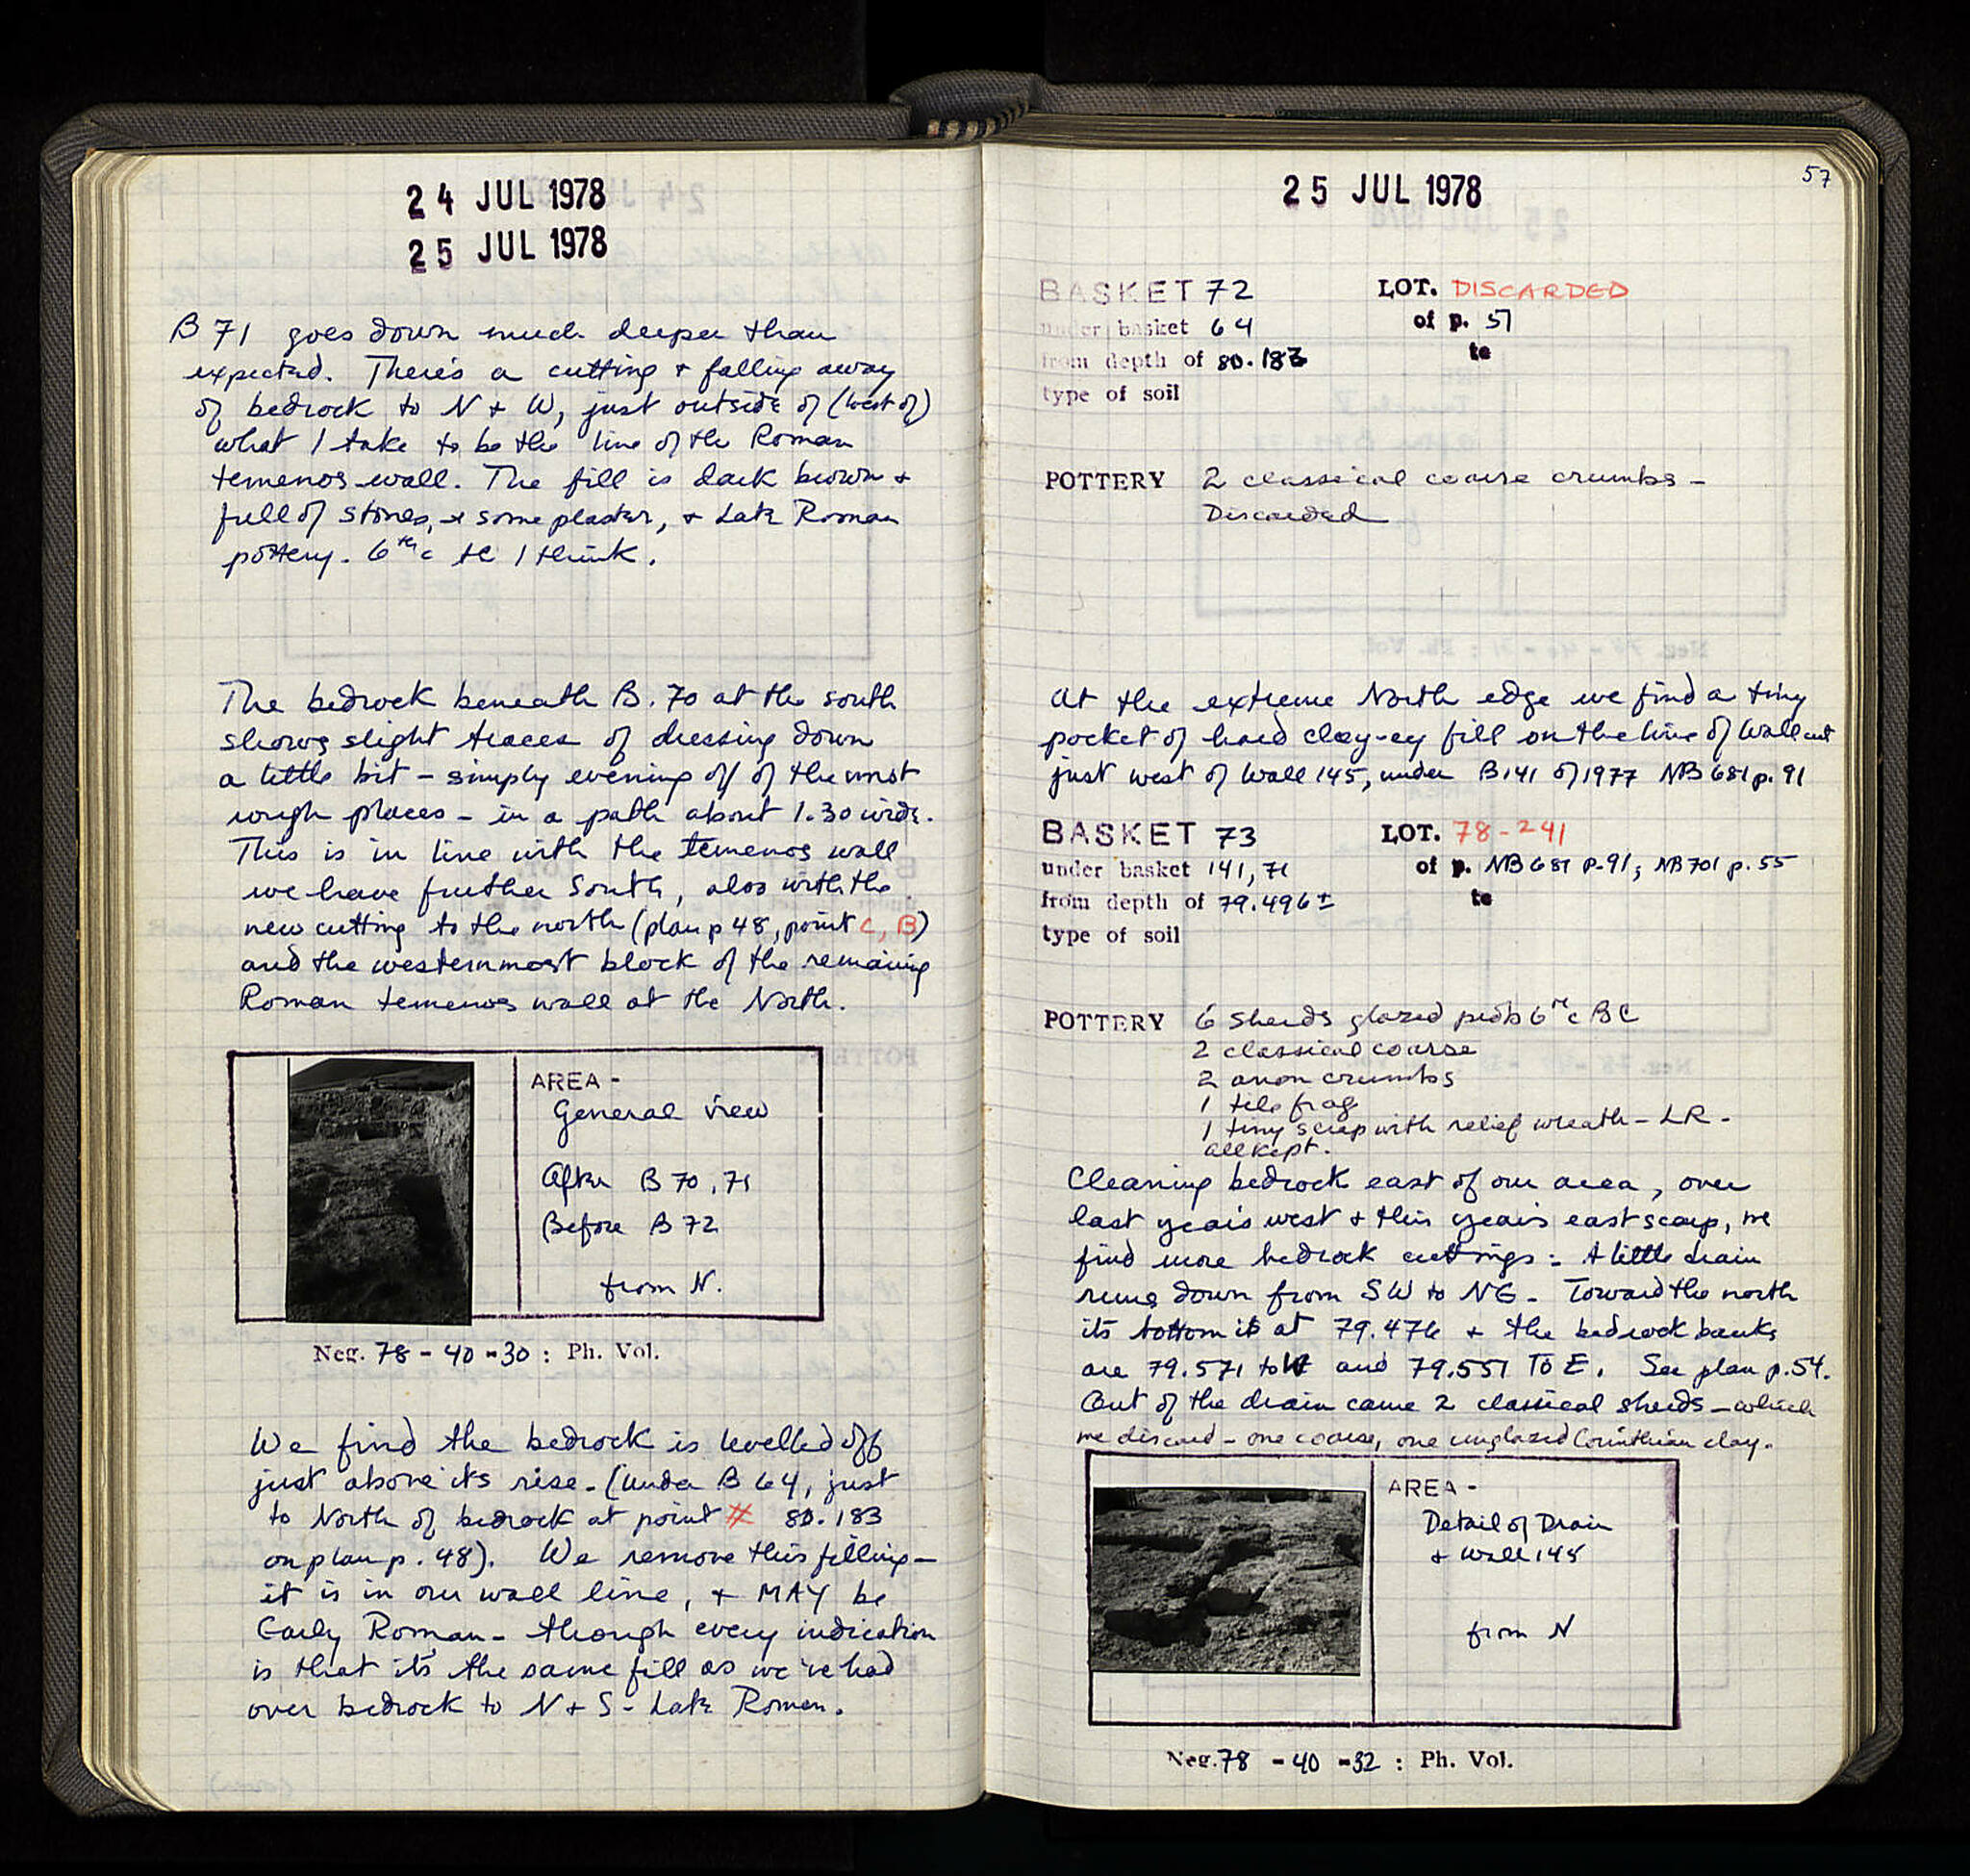 24 JUL 1978
25 JUL 1978
B 71 goes down much deeper than
expected. There's a cutting & falling away
of bedrock to N & W, just outside of (west of)
what I take to be the line of the Roman
temenos wall. The fill is dark brown &
full of stones, & some plaster, & Late Roman
pottery. 6th c I think.
The bedrock beneath B. 70 at the south
shows slight traces of dressing down
a little bit – simply evening off of the most
rough places – in a path about 1.30 wide.
This is in line with the temenos wall
we have further South, also with the
new cutting to the north (plan p 48, point C, B)
and the westernmost block of the remaining
Roman temenos wall at the North.
AREA -
General view
After B 70, 71
Before B 72
from N.
Neg. 78 - 40 - 30 : Ph. Vol.
We find the bedrock is levelled off
just above its rise. (Under B 64, just
to North of bedrock at point # 80.183
on plan p. 48). We remove this filling –
it is in our wall line, & MAY be
Early Roman – though every indication
is that it's the same fill as we've had
over bedrock to N & S – Late Roman.
57
25 JUL 1978
BASKET 72 LOT. DISCARDED
under basket 64 of p. 51
from depth of 80.183 to
type of soil
POTTERY 2 classical coarse crumbs –
Discarded
At the extreme North edge we find a tiny
pocket of hard clay-ey fill on the line of wall cut
just west of Wall 145, under B141 of 1977 NB 681 p. 91
BASKET 73 LOT. 78-241
under basket 141, 71 of p. NB 681 p. 91; NB 701 p. 55
from depth of 79.496± to
type of soil
POTTERY 6 sherds glazed prob 6th c BC
2 classical coarse
2 anon crumbs
1 tile frag
1 tiny scrap with relief wreath – LR –
all kept.
Cleaning bedrock east of our area, over
last year's west & this year's east scarp, we
find more bedrock cuttings: A little drain
runs down from SW to NE. Toward the north
its bottom is at 79.476 & the bedrock banks
are 79.571 to W and 79.551 TO E. See plan p. 54.
Out of the drain came 2 classical sherds – which
we discard – one coarse, one unglazed Corinthian clay.
AREA -
Detail of Drain
& Wall 145
from N
Neg. 78 - 40 - 32 : Ph. Vol.